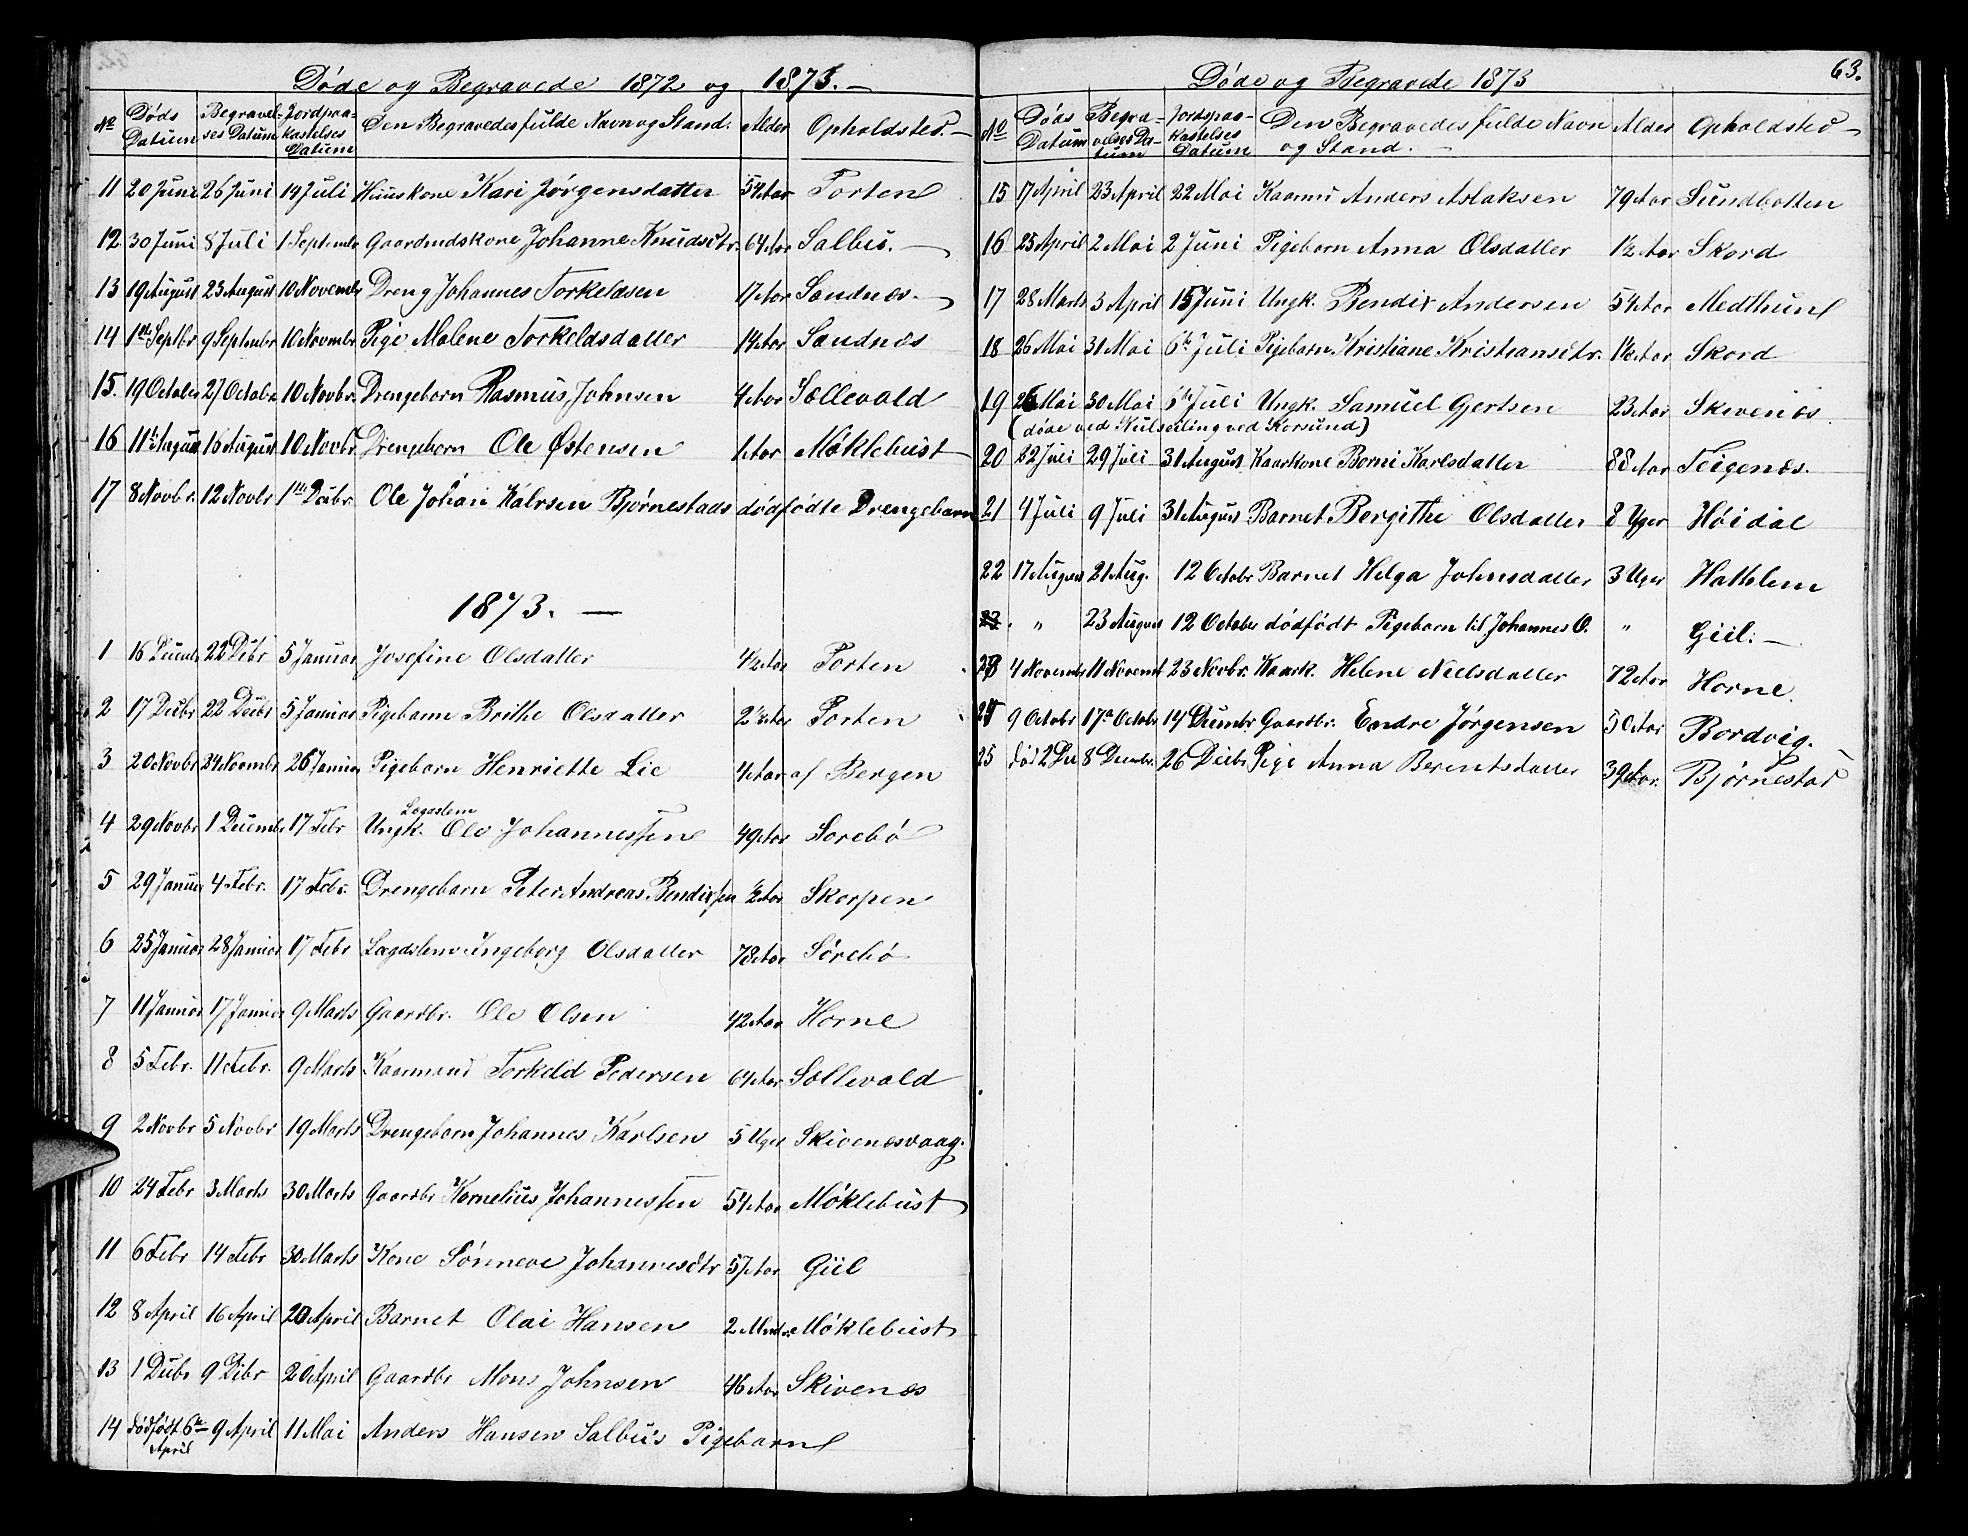 Døde og Begravede 1872 og 1873.
No Døds Datum Begravelses Datum Jordpaakastelses Datum Den Begravedes fulde Navn og Stand. Alder Opholdsted.
11 20 Juni 26 Juni 14 Juli Huuskone Kari Jørgensdatter 54 Aar Torten
12 30 Juni 8 Juli 1 Septembr Gaardmdskone Johanne Knudsdtr. 64 Aar Salbu.
13 19 August 23 August 10 Novembr Dreng Johannes Torkeldsen 17 Aar Sandnæs.
14 1ste Septbr 9 Septembr 10 Novmbr Pige Malene Torkeldsdatter 14 Aar Sandnæs
15. 19 October 27 Octobr 10 Novbr. Drengebarn Rasmus Johnsen 4 Aar Sællevald
16 11te August 16 August 10 Novbr Drengebarn Ole Østensen 1 Aar Møklebust
17 8 Novbr. 12 Novbr 1ste Decbr. Ole Johan Kalrsen Bjørnestads dødfødte Drengebarn
1873.
1 16 Decembr 22 Dcbr 5 Januar Josefine Olsdatter 4½ Aar Torten
2 17 Decbr 22 Decbr 5 Januar Pigebarn Brithe Olsdatter 2½ Aar Torten
3 20 Novbr 24 Novmbr 26 Januar Pigebarn Henriette Lie 4 Aar af Bergen
4 29 Novbr 1 Decembr 17 Febr Ungk. Lægdslem Ole Johannessen 49 Aar Sørebø
5 29 Januar 4 Febr. 17 Febr. Drengebarn Peter Andreas Bendixsen ½ Aar Skorpen
6 25 Januar 28 Januar 17 Febr Lægdslem Ingeborg Olsdatter 78 Aar Sørebø
7 11 Januar 17 Januar 9 Marts Gaardbr. Ole Olsen 42 Aar Horne
8 5 Febr. 11 Febr. 9 Marts Kaarmand Torkeld Pedersen 64 Aar Sællevald
9 2 Novbr 5 Novbr 19 Marts Drengebarn Johannes Karlsen 5 Uger Skivenæsvaag.
10 24 Febr 3 Marts 30 Marts Gaardbr Kornelius Johannessen 54 Aar Møklebust
11 6 Febr 14 Febr 30 Marts Kone Sønneve Johannesdtr 57 Aar Giil
12 8 April 16 April 20 April Barnet Olai Hansen 2 Mndr. Møklebust
13 1 Decbr 9 Dcbr 20 April Gaardbr Mons Johnsen 46 Aar Skivenæs
14 dødfødt 6te April 9 April 11 Mai Anders Hansen Salbu's Pigebarn
63.
Døde og Begravede 1873
No Døds Datum Begravelses Datum Jordspaakastelses Datum Den Begravedes fulde Navn og Stand. Alder Opholdsted
15 17 April 23 April 22 Mai Kaarmd Anders Aslaksen 79 Aar Sundbotten
16 25 April 2 Mai 2 Juni Pigebarn Anna Olsdatter 1½ Aar Skord
17 28 Marts 3 April 15 Juni Ungk. Bendix Andersen 54 Aar Medthun
18 26 Mai 31 Mai 6te Juli Pigebarn Kristiane Kristiansdtr. 1½ Aar Skord
19 26 Mai 30 Mai 6te Juli Ungk. Samuel Gjertsen 23 Aar Skivenæs
(døde ved Kulseiling ved Korsund)
20 22 Juli 29 Juli 31 August Kaarkone Borni Karlsdatter 88 Aar Teigenæs.
21 4 Juli 9 Juli 31 August Barnet Bergithe Olsdatter 8 Uger Høidal
22 17 August 21 Aug. 12 Octobr Barnet Helga Johnsdatter 3 Uger Hatlelem
23. " 23 August 12 October dødfødt Pigebarn til Johannes O. " Giil.
23 4 Novembr 11 Novembr 23 Novbr. Kaark. Helene Nielsdatter 72 Aar Horne
24 9 Octobr 17de Octobr 14 Decembr Gaardbr. Endre Jørgensen 50 Aar Bordvig.
25 død 2 Dec 8 Decembr. 26 Decbr Pige Anna Berentsdatter 39 Aar. Bjørnestad